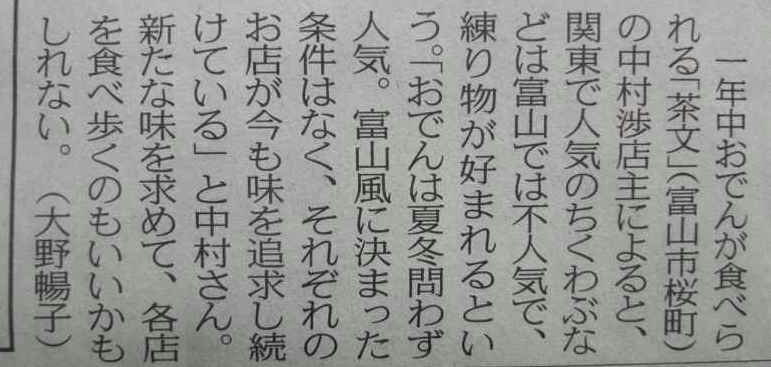 一年中おでんが食べら
れる「茶文」(富山市桜町)
の中村渉店主によると、
関東で人気のちくわぶな
どは富山では不人気で、
練り物が好まれるとい
う。「おでんは夏冬問わず
人気。富山風に決まった
条件はなく、それぞれの
お店が今も味を追求し続
けている」と中村さん。
新たな味を求めて、各店
を食べ歩くのもいいかも
しれない。(大野暢子)